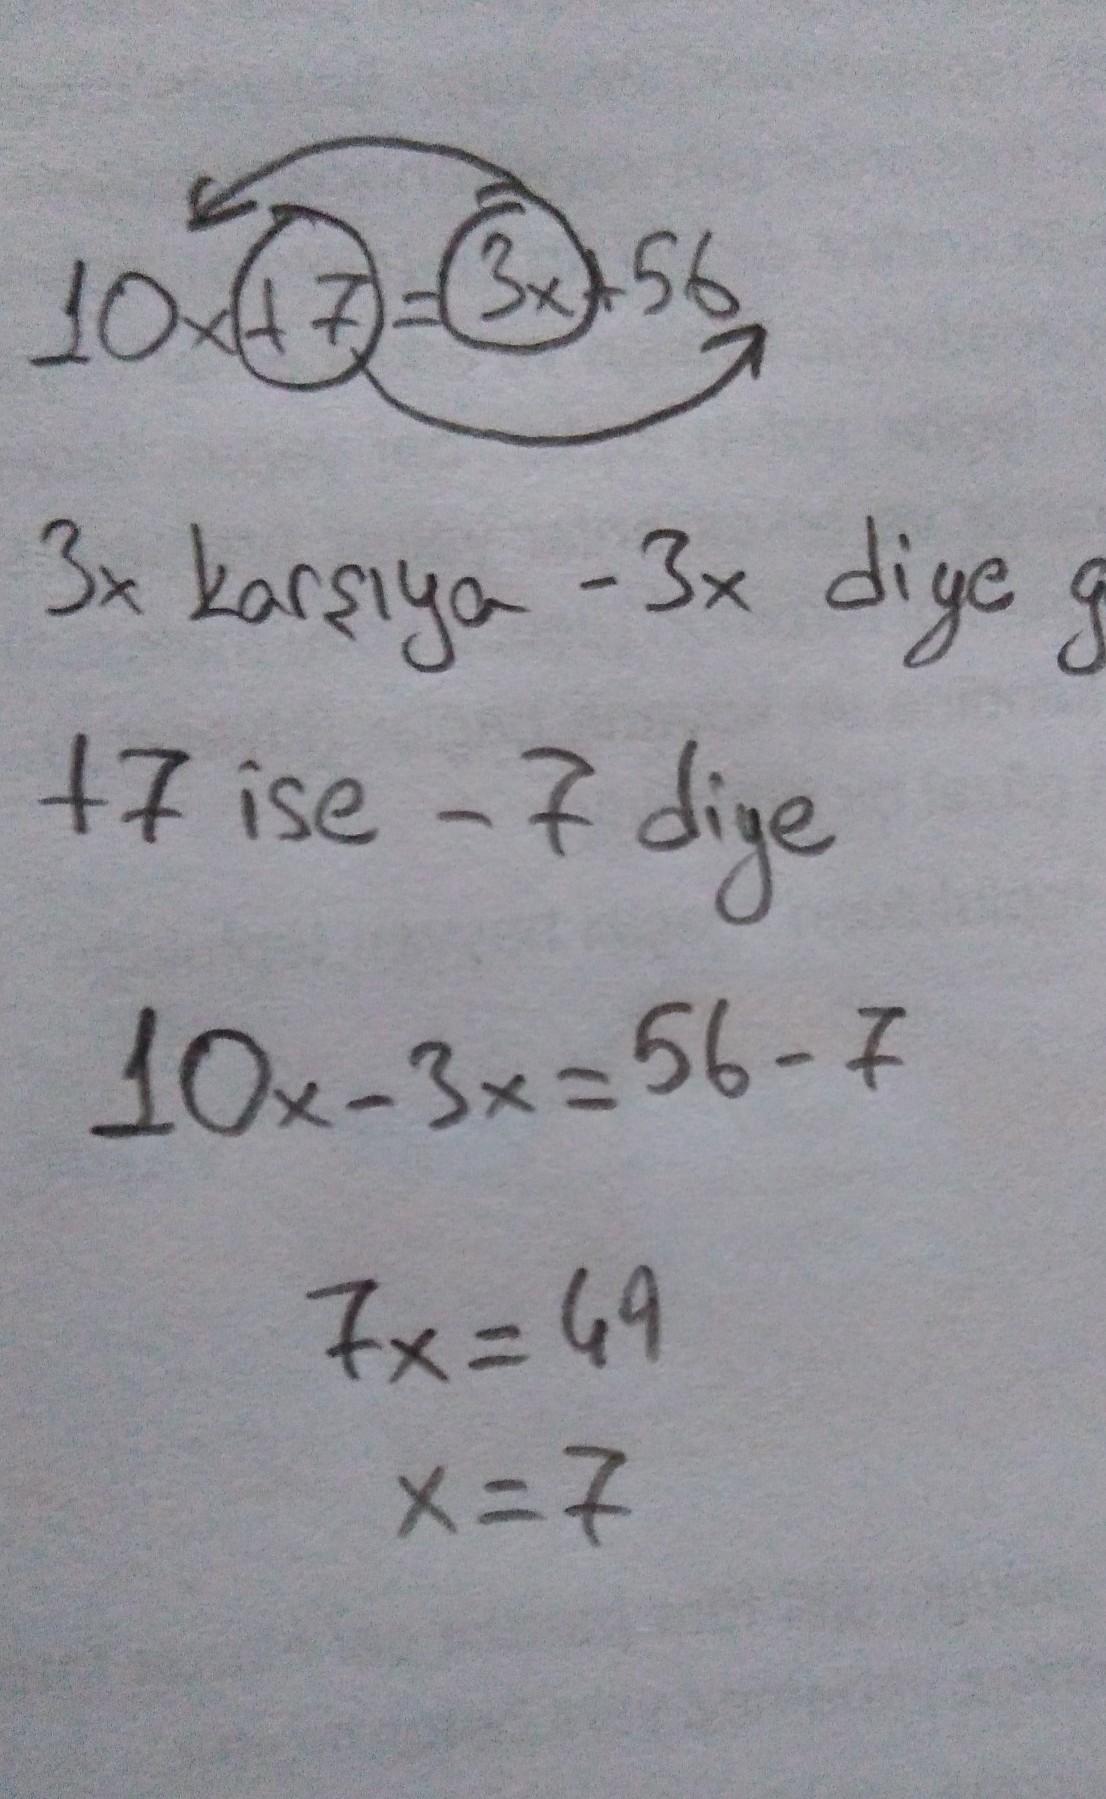 10x+7=3x+56
3x karşıya -3x diye
+7 ise -7 diye
10x-3x=56-7
7x=49
x=7